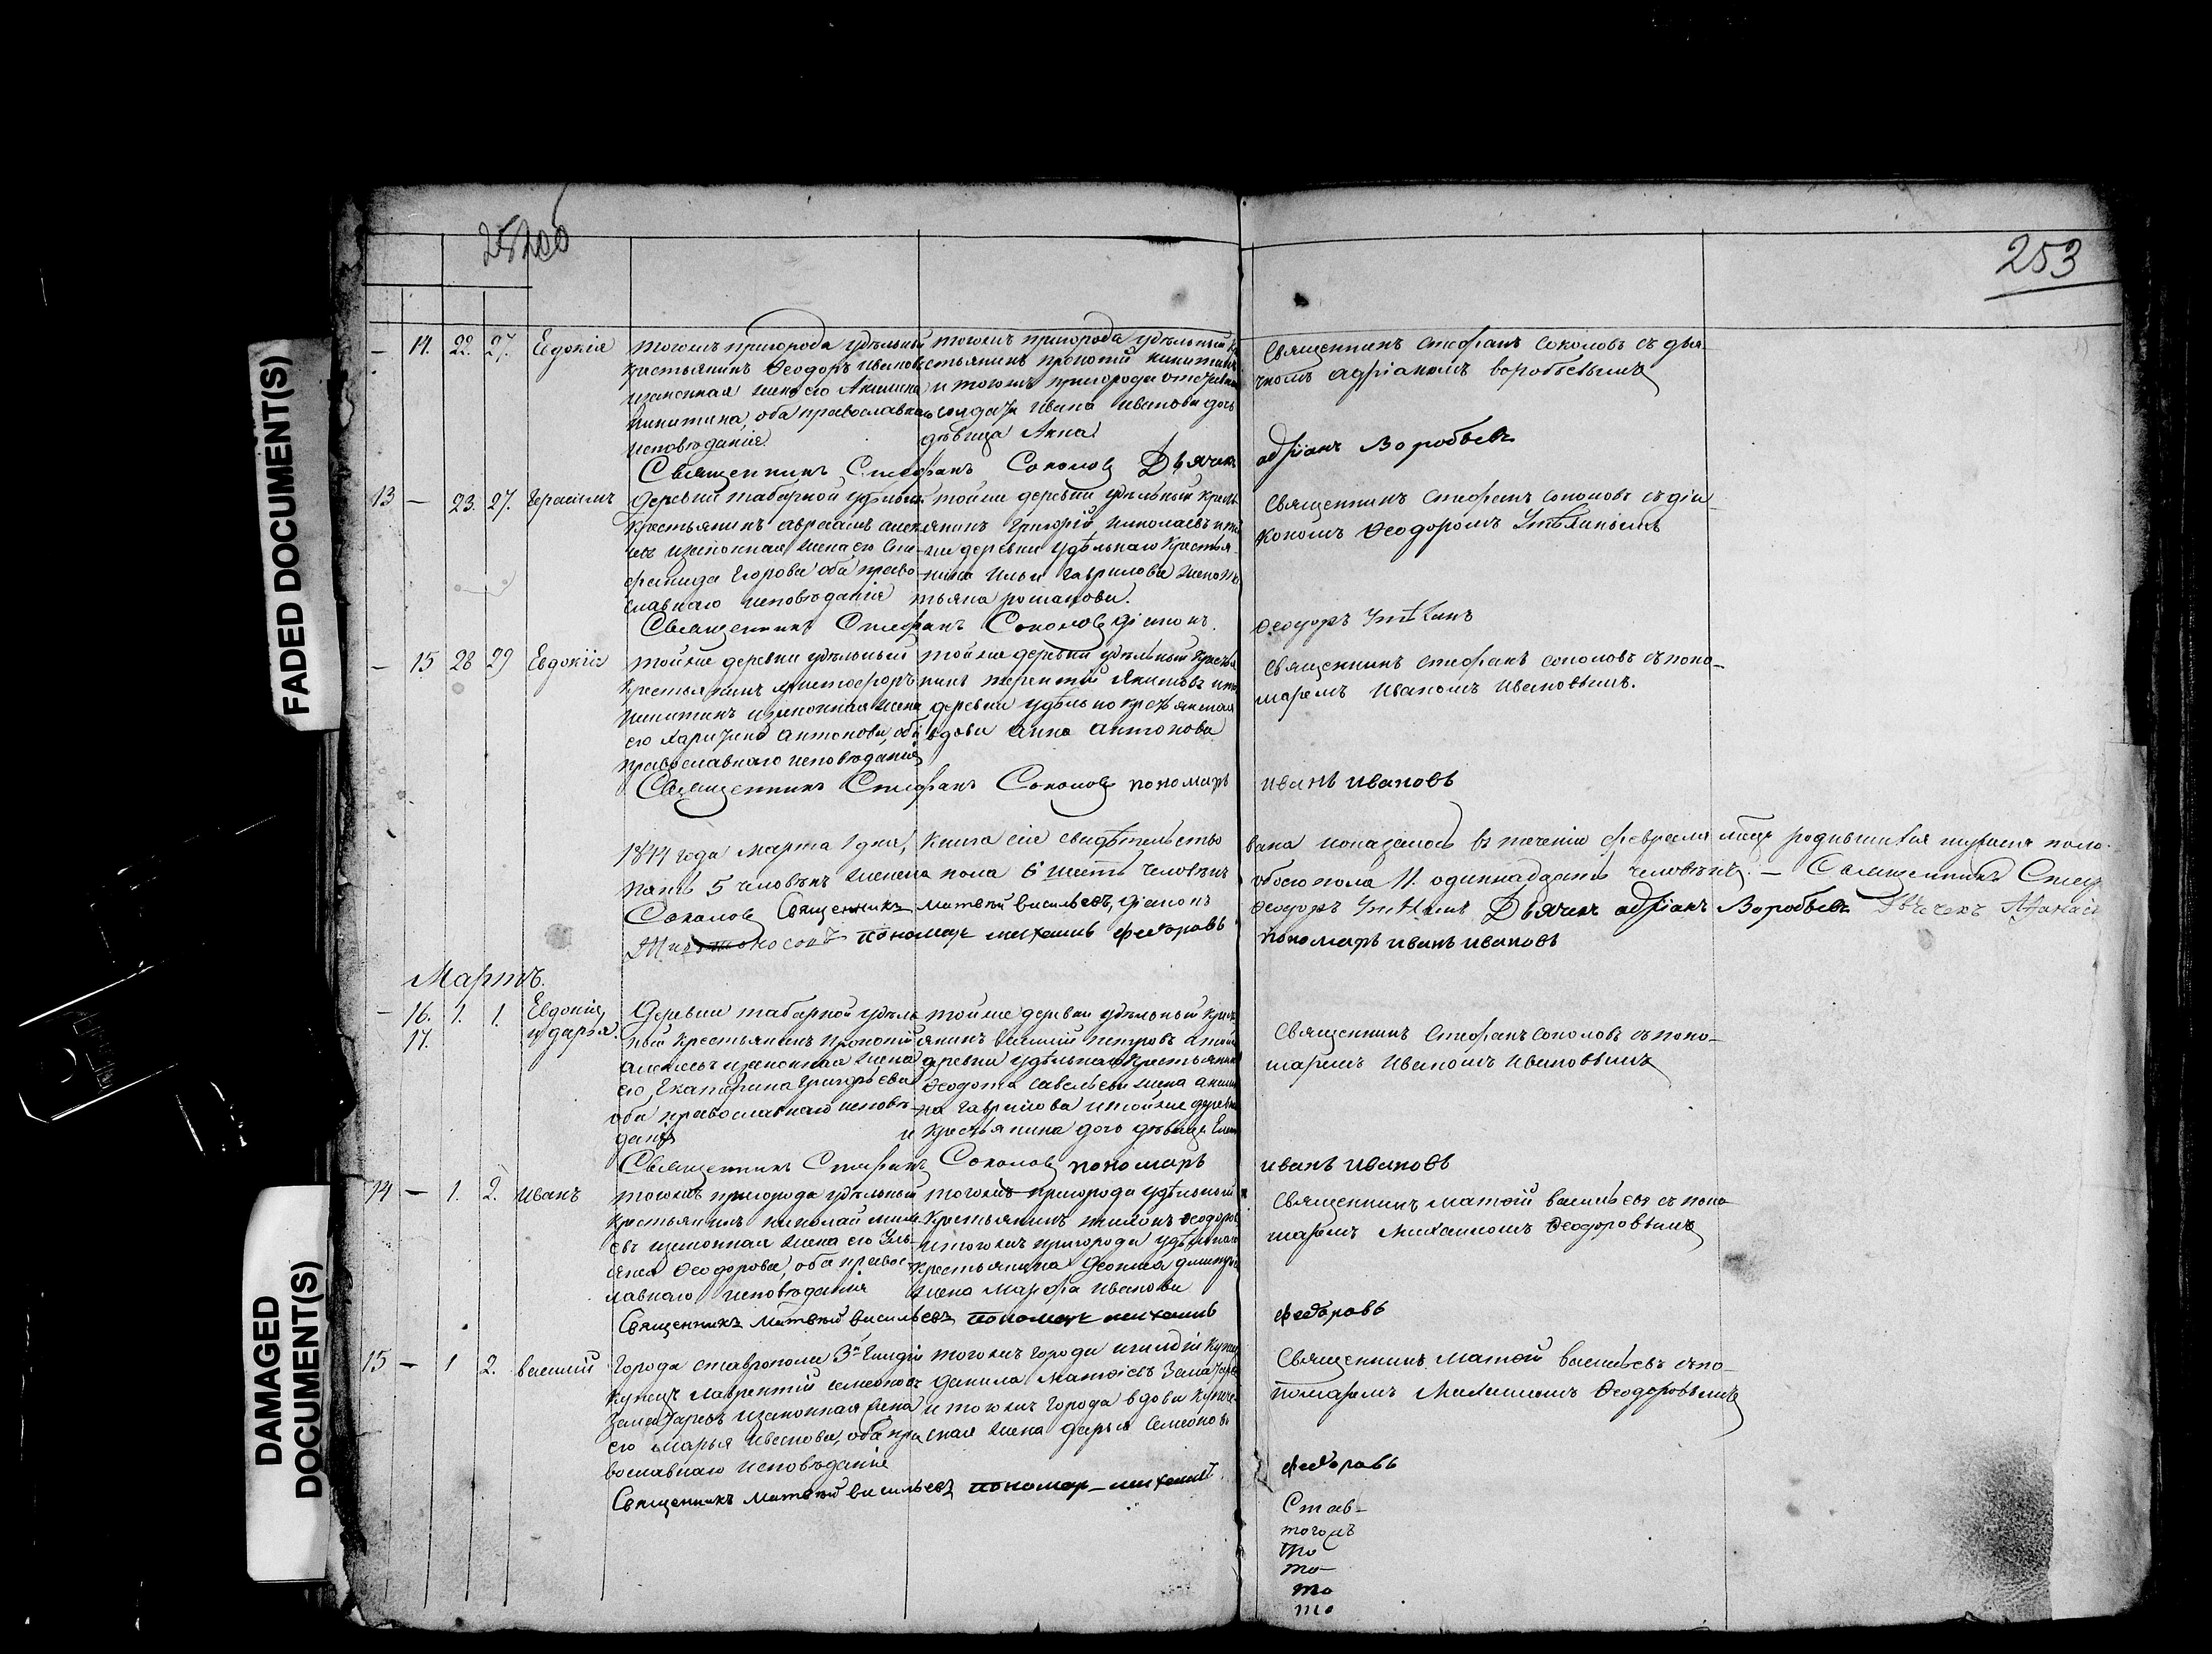 FADED DOCUMENT(S)
DAMAGED DOCUMENT(S)
253
— 14. 22. 27. Евдокія
тогожъ пригорода удѣльный
крестьянинъ Ѳеодоръ Иванов
изаконная жена его Акилина
Никитина, оба православнаго
исповѣданія
тогожъ пригорода удѣльный кре
стьянинъ прокопій никитинъ
и тогожъ пригорода
солдата Ивана Иванова дочь
дѣвица Анна
Священникъ Стефанъ Соколовъ съ дья
чкомъ адріаномъ воробьевымъ
Священникъ Стефанъ Соколовъ Дьячекъ
адріанъ Воробьевъ
13 — 23. 27. Герасимъ
Деревни табарной удѣльный
крестьянинъ авраамъ алек
изаконная жена его Сте-
фанида Егорова оба право-
славнаго исповѣданія
тойже деревни удѣльный кресть
янинъ Григорій Николаевъ итой
же деревни удѣльнаго крестья
нина Ильи Гаврилова жена
тьяна романова.
Священникъ Стефанъ Соколовъ съ діа
кономъ Ѳеодоромъ Утѣхинымъ
Священникъ Стефанъ Соколовъ діаконъ
Ѳеодоръ Утѣхинъ
— 15 28 29 Евдокія
тойже деревни удѣльный
крестьянинъ христофоръ
никитинъ изаконная жена
его харитина антонова, оба
православнаго исповѣданія
тойже деревни удѣльный крестья
нинъ терентій Якимовъ итой
деревни удѣльно крестьянская
вдова анна антонова
Священникъ Стефанъ Соколовъ съ поно-
маремъ Иваномъ Ивановымъ.
Священникъ Стефанъ Соколовъ пономарь
иванъ ивановъ
1844 года Марта 1 дня, книга сія свидѣтельство
вана ипоказалось въ теченіи февраля мѣсяца родившихся мужеска пола
пять 5 человѣкъ женска пола 6 шесть человѣкъ
обоего пола 11. одиннадцать человѣкъ. — Священникъ Стеф
Соколовъ Священникъ матвей васильевъ, діаконъ
Ѳеодоръ Утѣхинъ Дьячекъ адріанъ Воробьевъ Дьячекъ Аѳанасій
пономарь михаилъ федоровъ
пономарь иванъ ивановъ
Мартъ.
— 16. 17. 1. 1. Евдокія, и дарья.
Деревни табарной удѣль
ный крестьянинъ Прокопій
алексѣевъ изаконная жена
его Екатерина Григорьева
оба православнаго исповѣ-
данія
тойже деревни удѣльный крест
янинъ Василій петровъ итойже
деревни удѣльнаго крестьянина
Ѳеодота савельева жена акили
на гаврилова и тойже деревни
и крестьянина дочь дѣвица
Священникъ Стефанъ Соколовъ съ поно-
маремъ Иваномъ Ивановымъ
Священникъ Стефанъ Соколовъ пономарь
иванъ ивановъ
14 — 1. 2. Иванъ
тогожъ пригорода удѣльный
крестьянинъ николай
евъ изаконная жена его Уль-
яна Ѳеодорова, оба правос-
лавнаго исповѣданія
тогожъ пригорода удѣльный
крестьянинъ тихонъ Ѳеодоров
итогожъ пригорода удѣльнаго
крестьянина
жена Марфа Иванова
Священникъ матѳій васильевъ съ поно
маремъ Михаиломъ Ѳеодоровымъ
Священникъ матвей васильевъ пономарь михаилъ
федоровъ
15 — 1 2. василій
Города ставрополя 3й Гильдіи
купецъ лаврентій семеновъ
изаконная жена
его марья Иванова, оба пра
вославнаго исповѣданія
тогожъ города игильдіи купец
данила Матѳіевъ
и тогожъ города вдова купече
ская жена дарья Семенова
Священникъ Матѳій васильевъ съ по-
номаремъ Михаиломъ Ѳеодоровымъ
Священникъ матвей васильевъ пономарь михаилъ
федоровъ
Став-
тогожъ
то
то-
то
то